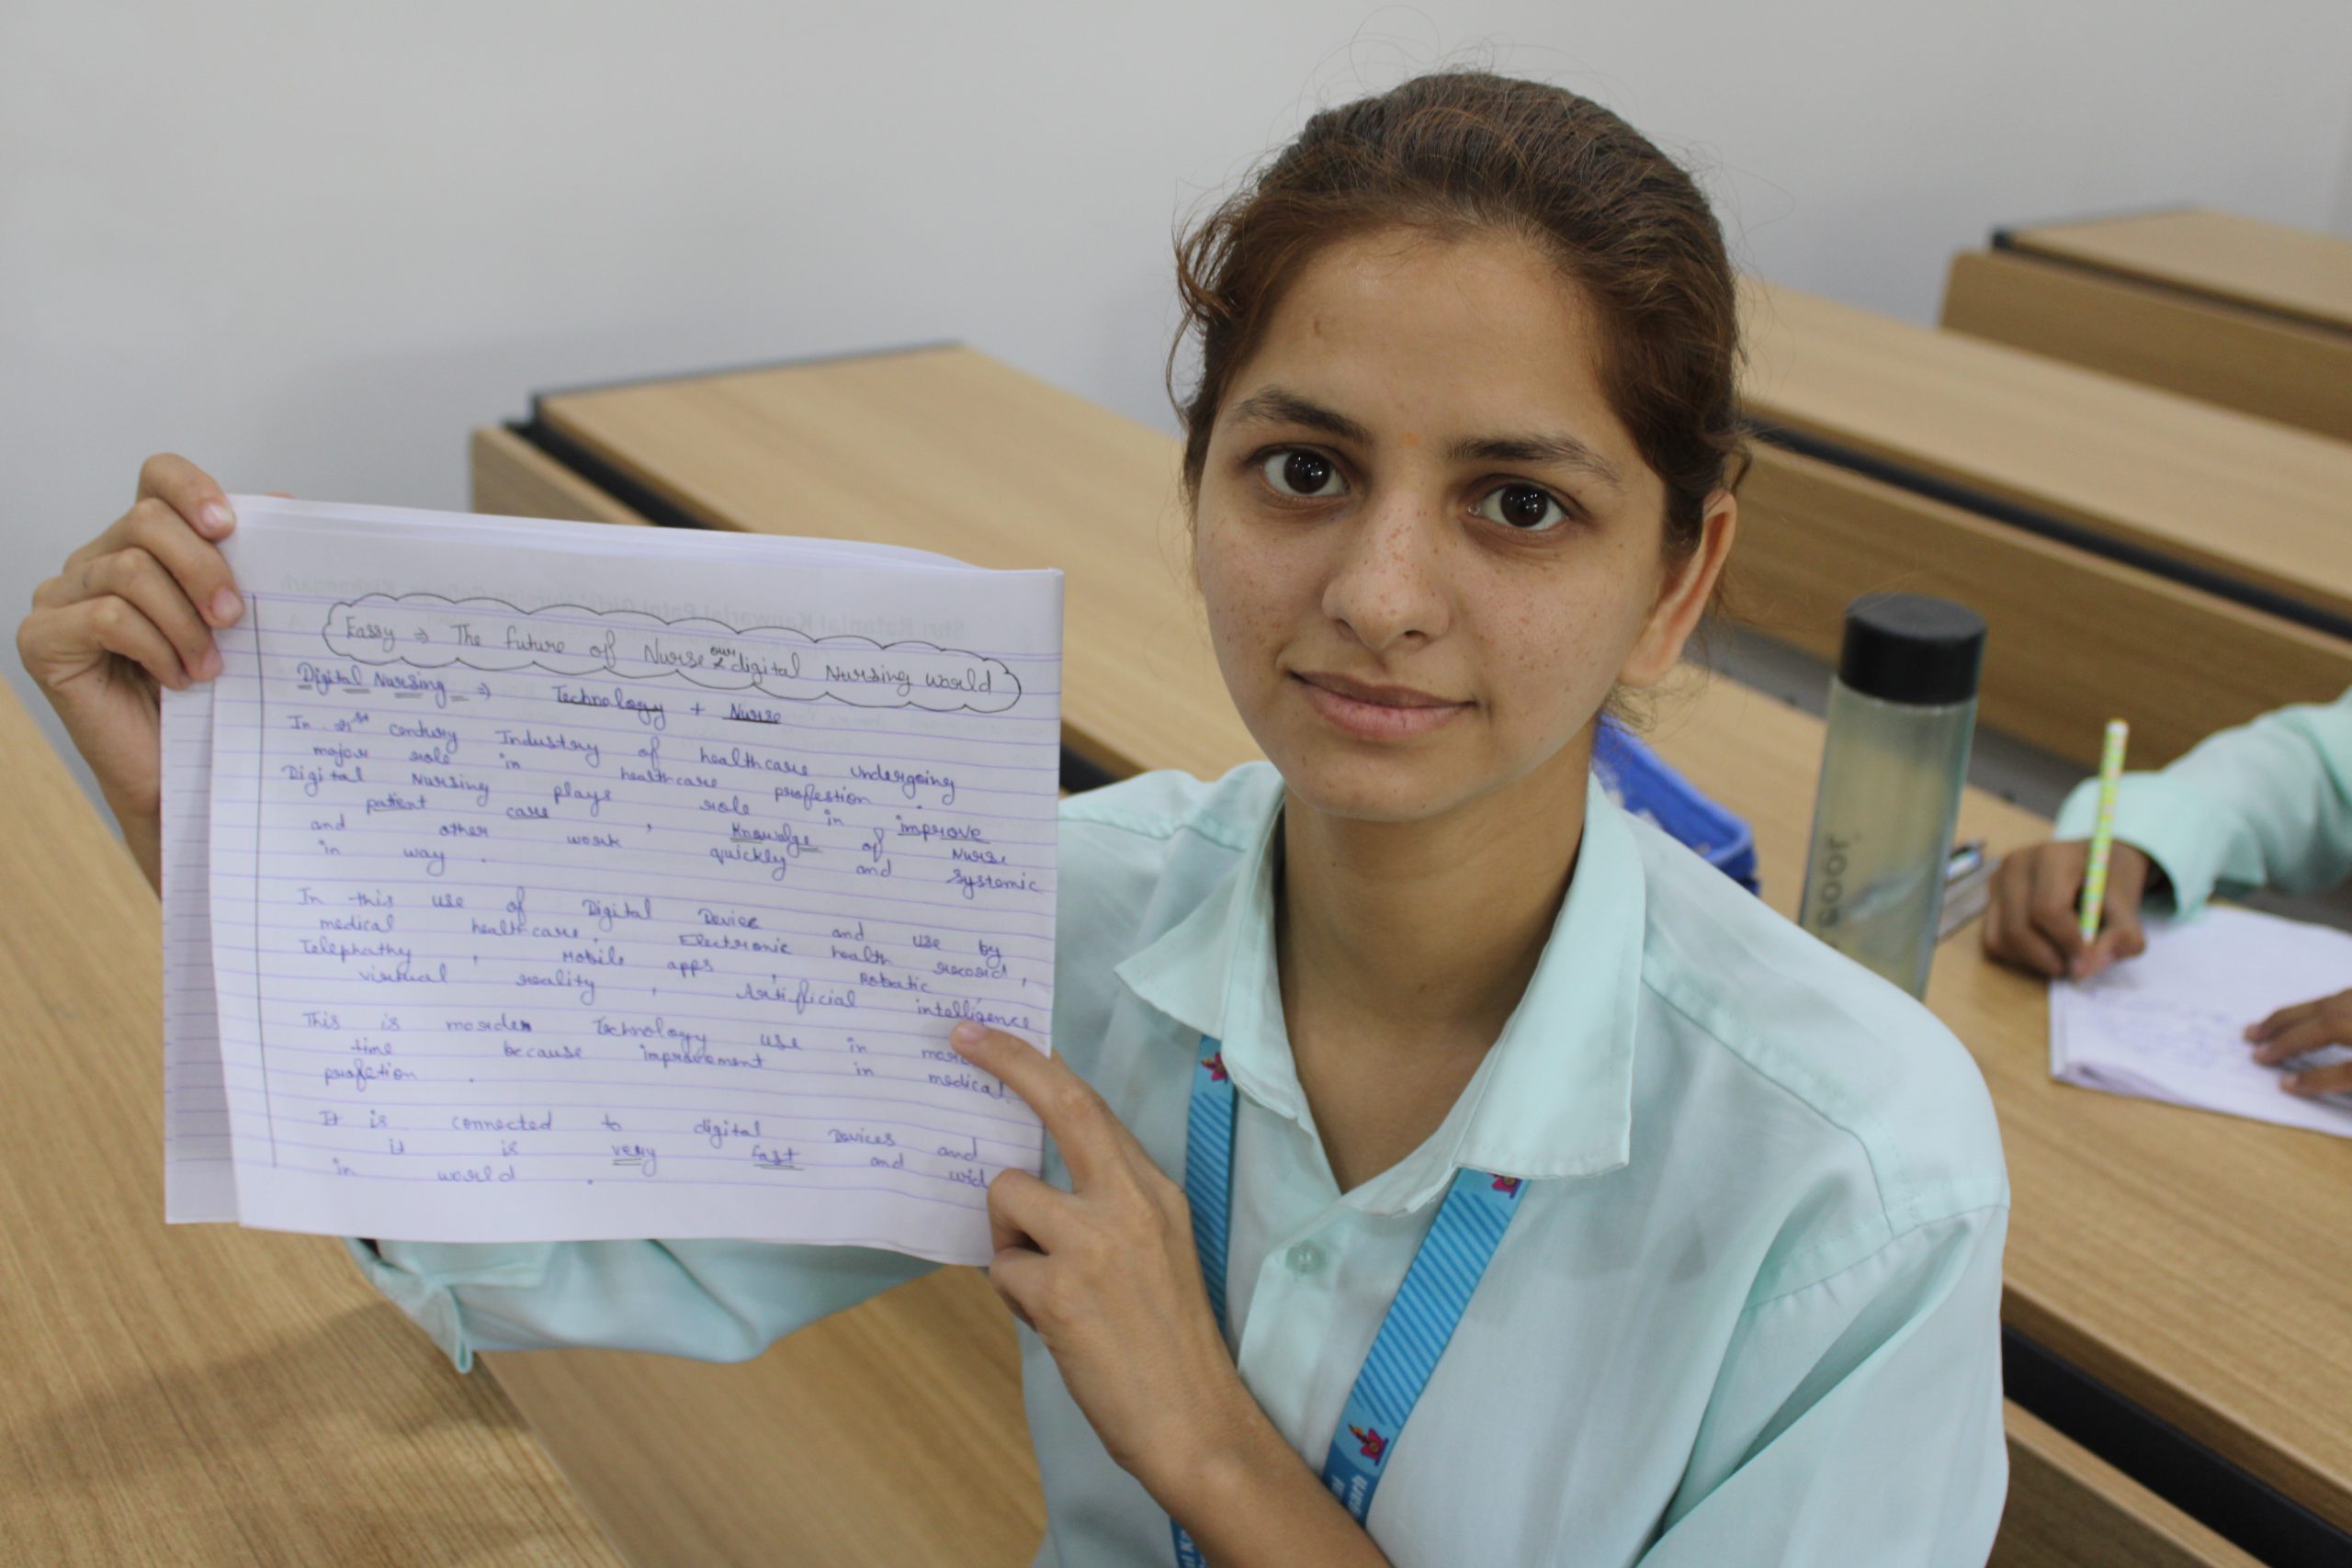 Eassy ⇒ The future of Nurse & our digital Nursing world
Digital Nursing ⇒ Technology + Nurse
In 21st century Industry of healthcare undergoing
major role in healthcare profestion.
Digital Nursing plays role in improve
patient care, Knowalge of Nurse
and other work quickly and systemic
in way.
In this use of Digital Device and use by
medical healthcare. Electronic health record,
Telephathy, Mobile apps, Robatic
virtual reality, Artificial intelligence
This is morden Technology use in
time because improvement in medical
profetion.
It is connected to digital Devices and
it is very fast and wid
in world.